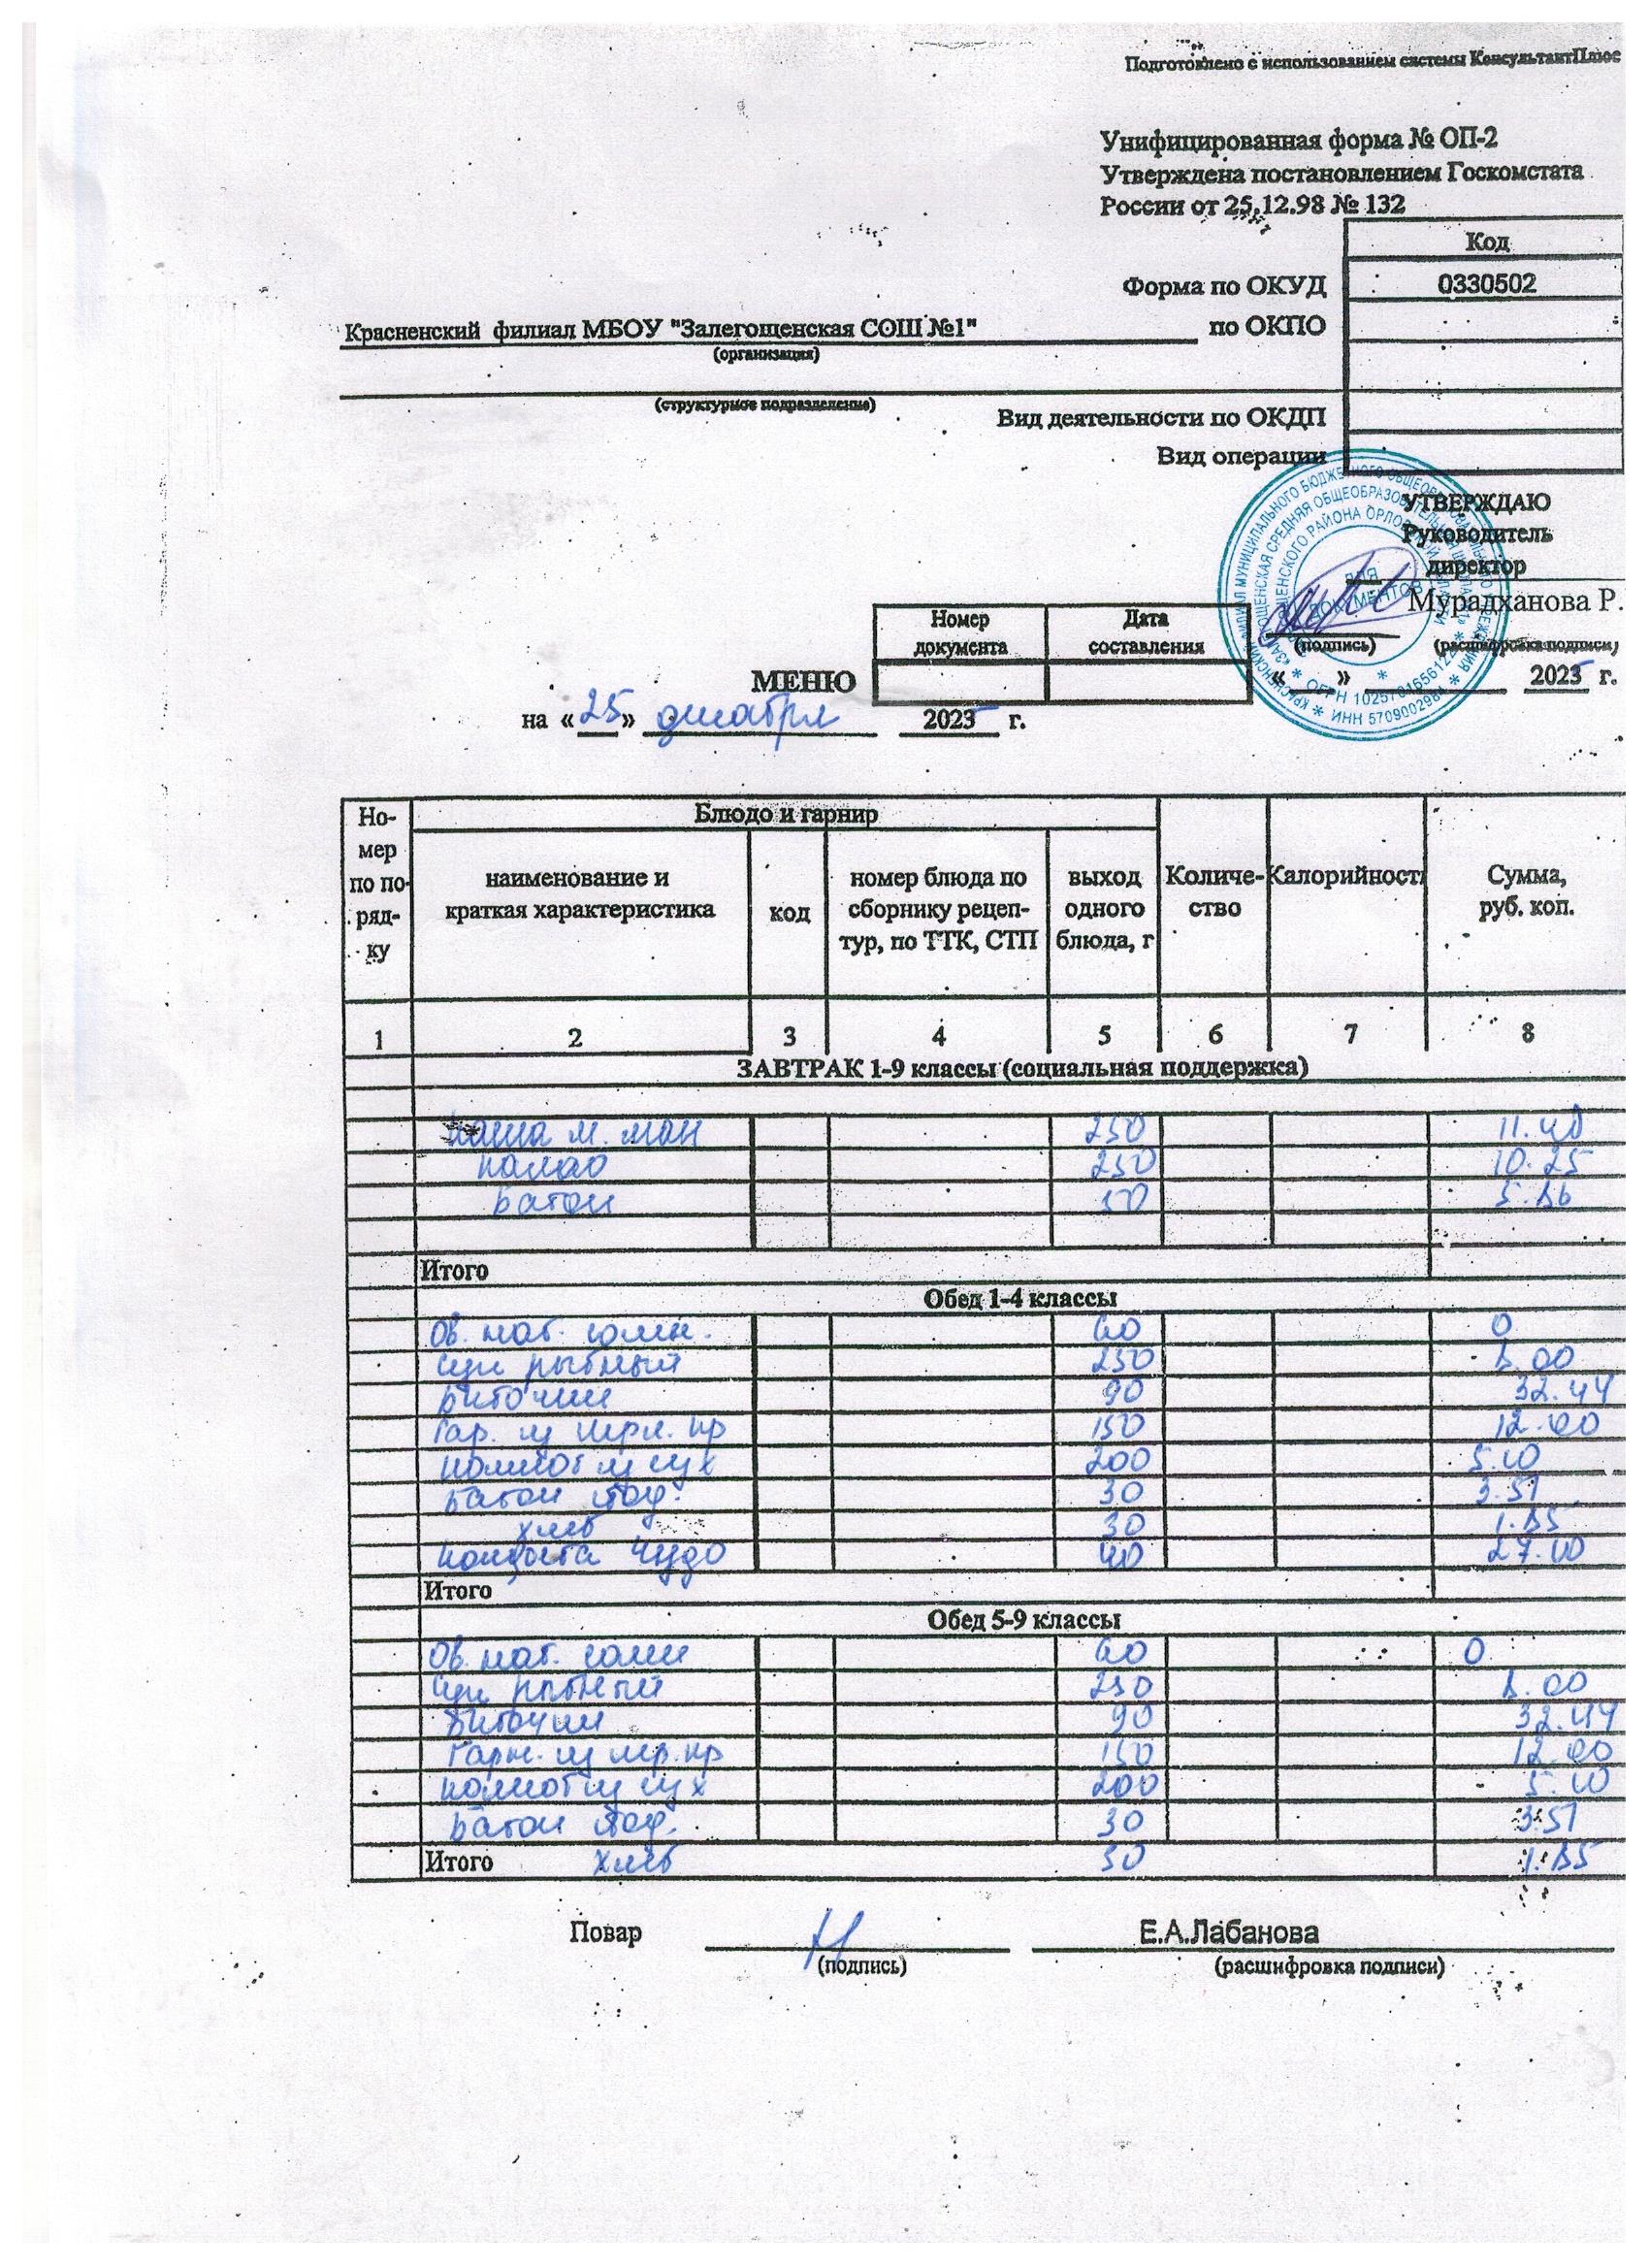 Подготовлено с использованием системы КонсультантПлюс
Унифицированная форма № ОП-2
Утверждена постановлением Госкомстата
России от 25.12.98 № 132
Код
Форма по ОКУД 0330502
Красненский филиал МБОУ "Залегощенская СОШ №1" по ОКПО
(организация)
(структурное подразделение)
Вид деятельности по ОКДП
Вид операции
УТВЕРЖДАЮ
Руководитель
директор
Мурадханова Р.
(подпись) (расшифровка подписи)
« » 2025 г.
Номер документа Дата составления
МЕНЮ
на «25» декабря 2025 г.
Но-
мер
по по-
ряд-
ку
Блюдо и гарнир
наименование и
краткая характеристика
код
номер блюда по
сборнику рецеп-
тур, по ТТК, СТП
выход
одного
блюда, г
Количе-
ство
Калорийность
Сумма,
руб. коп.
1 2 3 4 5 6 7 8
ЗАВТРАК 1-9 классы (социальная поддержка)
каша м. ман 250
какао 250 10.25
батон 50
Итого
Обед 1-4 классы
Ов. нат. солен. 60 0
суп рыбный 250 8.00
биточки 90 32.44
Гар. из перл. кр 150
компот из сух 200
батон йод. 30 3.51
хлеб 30 1.85
конфета чудо 40
Итого
Обед 5-9 классы
Ов. нат. солен 60 0
суп рыбный 250 8.00
биточки 90 32.44
Гарн. из пер. кр 150
компот из сух 200
батон йод. 30 3.51
Итого хлеб 30 1.85
Повар Е.А.Лабанова
(подпись) (расшифровка подписи)